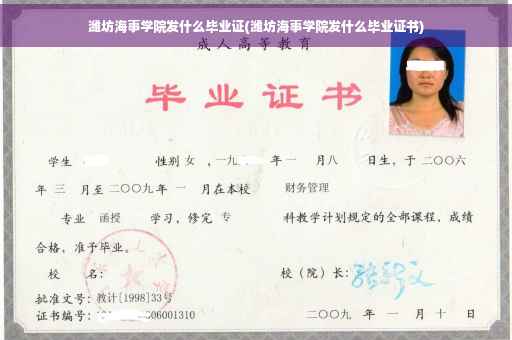 潍坊海事学院发什么毕业证(潍坊海事学院发什么毕业证书)
成人高等教育
毕业证书
学生 性别 女 ，一九 年一 月八 日生，于二〇〇六
年 三 月至二〇〇九年 一 月在本校 财务管理
专业 函授 学习，修完 专 科教学计划规定的全部课程，成绩
合格，准予毕业。
校 名： 校（院）长：
批准文号：教计[1998]33号
证书编号： 06001310 二〇〇九 年 一 月 十 日